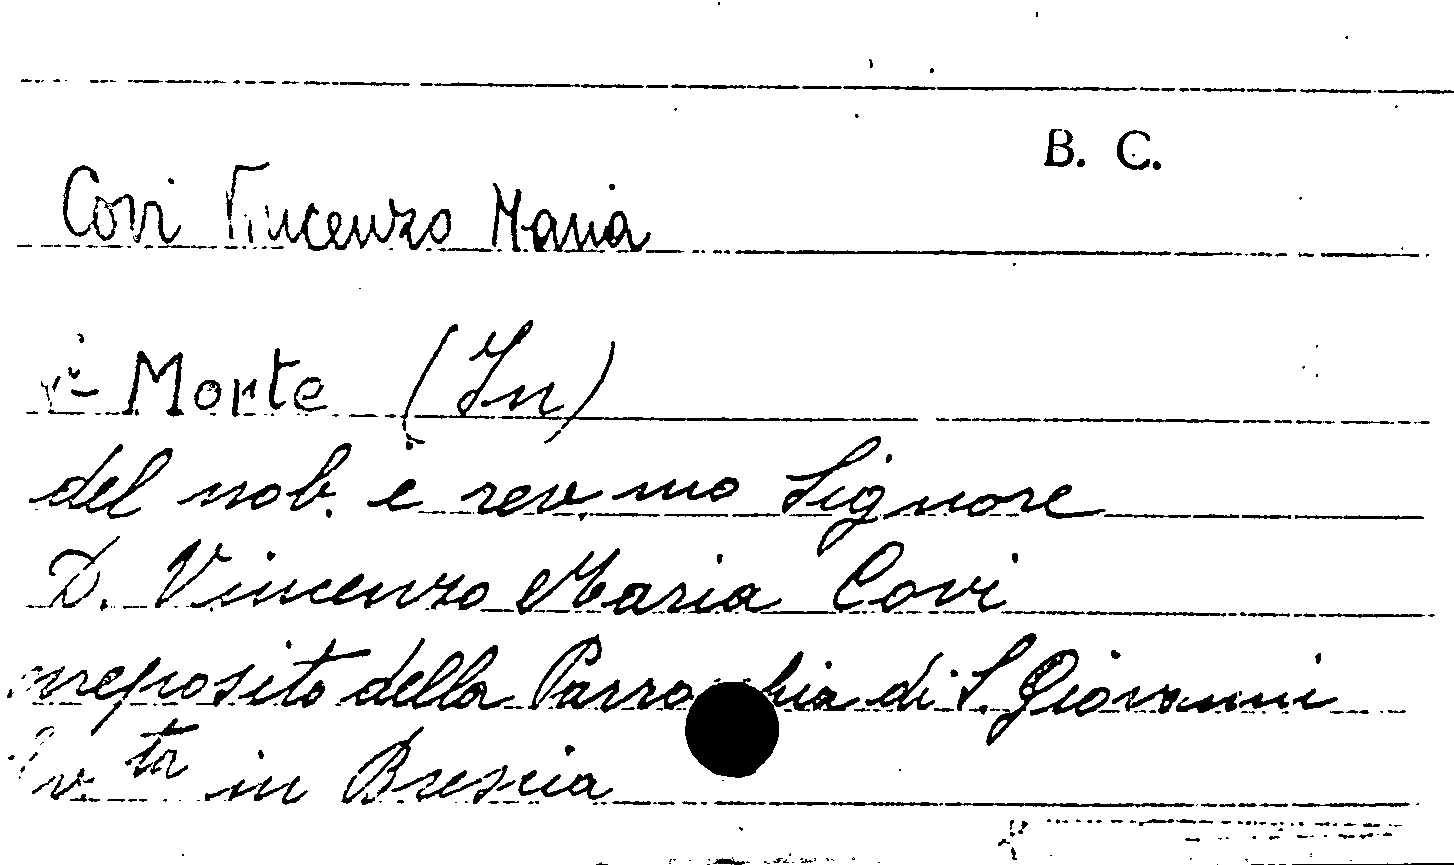 B. C.
Covi Vincenzo Maria
Morte (In)
del nob. e rev.mo Signore
D. Vincenzo Maria Covi
preposito della Parrocchia di S. Giovanni
Ev.ta in Brescia